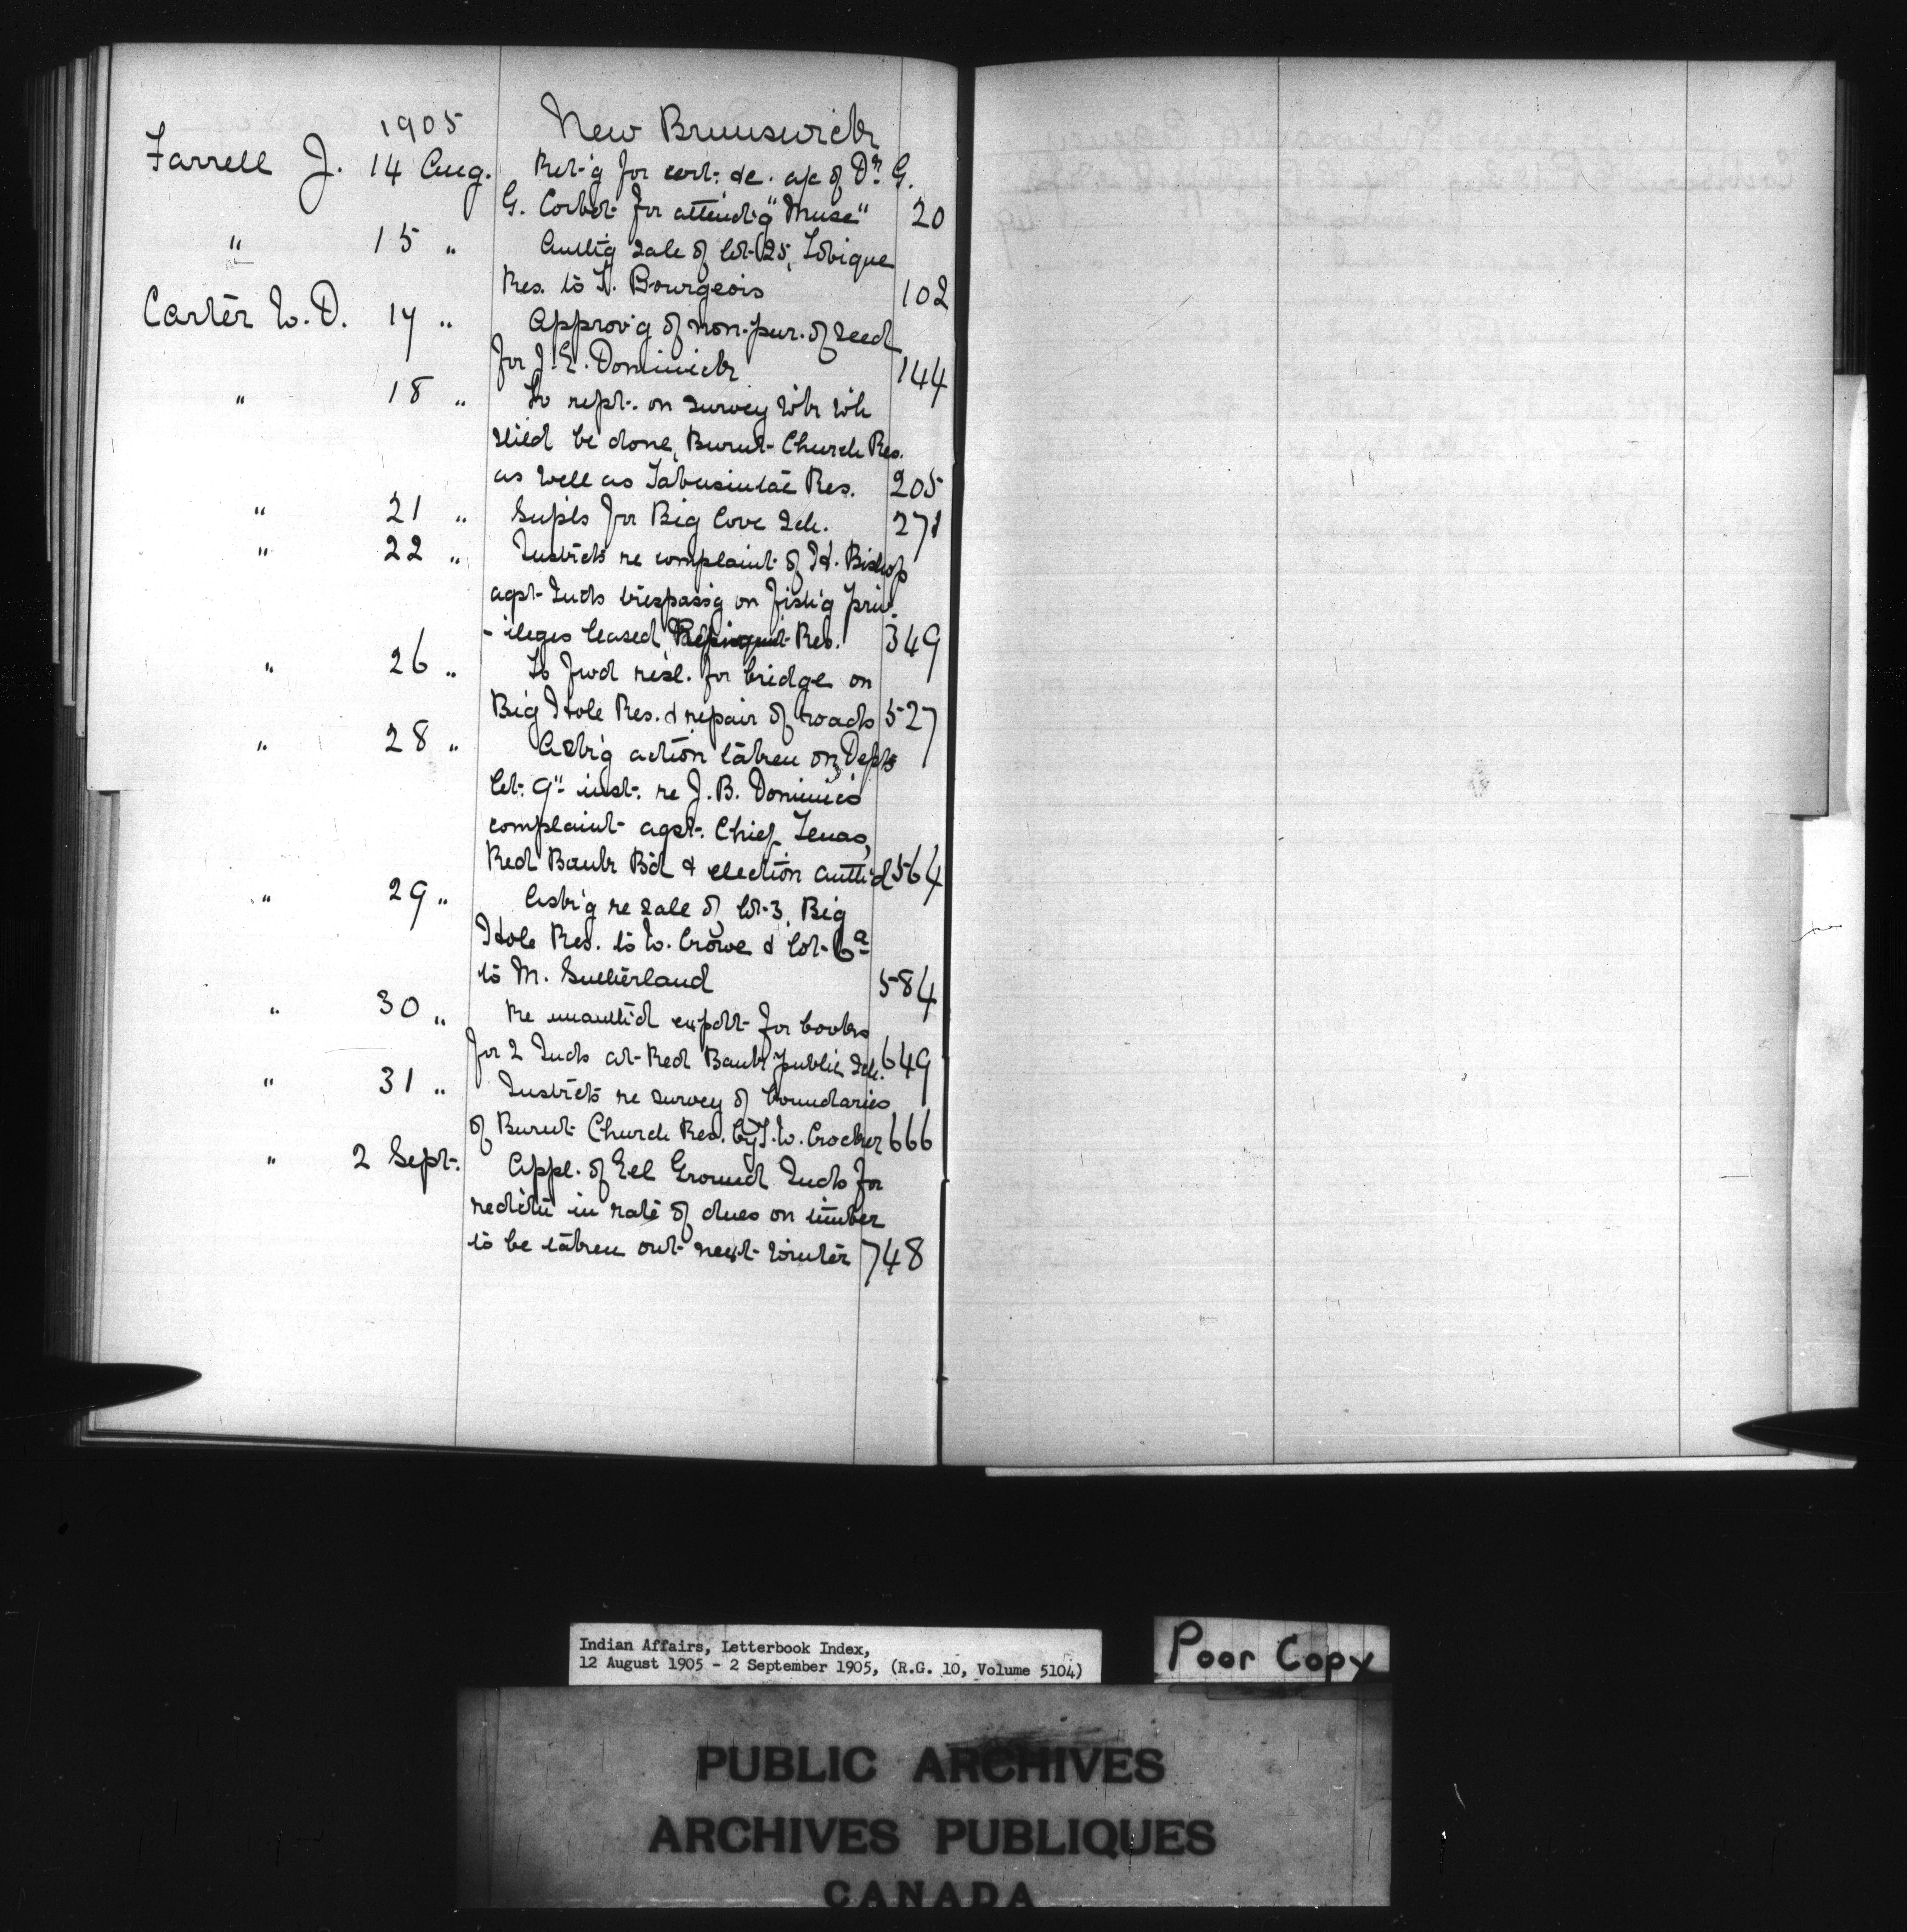 1905 New Brunswick
Farrell J. 14 Aug. Ret'g for cert: &c. a/c of Dr. G.
G. Corbet for attend'g "Muse" 20
" 15 " Auth'g sale of lot 25, Tobique
Res. to T. Bourgeois 102
Carter W.D. 17 " Approv'g of non-pur. of seed
for J.E. Dominick 144
" 18 " To rept. on survey wk wh
shld be done, Burnt Church Res.
as well as Tabusintac Res. 205
" 21 " Supls for Big Cove Sch. 271
" 22 " Instrcts re complaint of H. Bishop
agst Inds trespass'g on fish'g priv-
-ileges leased, Res. 349
" 26 " To fwd resl. for bridge on
Big Hole Res. & repair of roads 527
" 28 " Ask'g action taken on Depts
let: 9" inst: re J.B. Dominic's
complaint agst. Chief Tenas,
Red Bank B'd & election auth'd 564
" 29 " Ask'g re sale of lot 3, Big
Hole Res. to W. Crowe & lot 6a
to M. Sutherland 584
" 30 " Re unauth'd expdt for books
for 2 Inds at Red Bank public Sch. 649
" 31 " Instrcts re survey of boundaries
of Burnt Church Res. by T.W. Crocker 666
" 2 Sept. Appl. of Eel Ground Inds for
redctn in rate of dues on timber
to be taken out next winter 748
Indian Affairs, Letterbook Index,
12 August 1905 - 2 September 1905, (R.G. 10, Volume 5104)
Poor Copy
PUBLIC ARCHIVES
ARCHIVES PUBLIQUES
CANADA